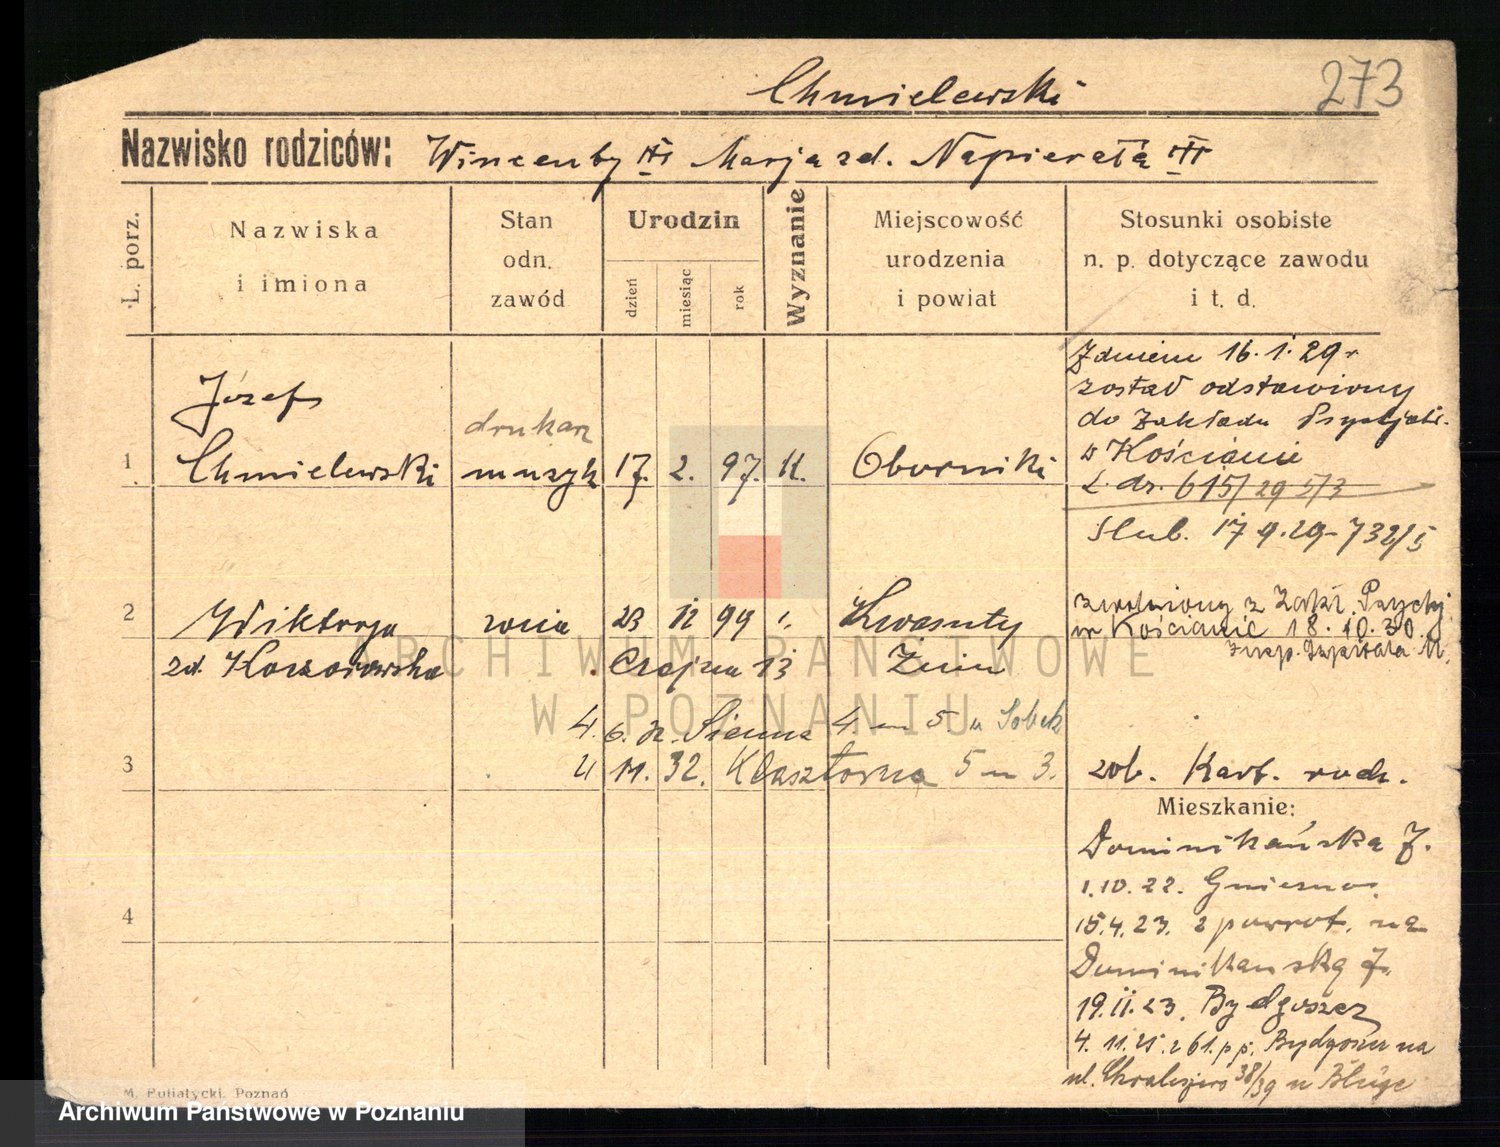 Chmielewski
273
Nazwisko rodziców: Wincenty Marja zd. Napierała
L. porz.
Nazwiska
i imiona
Stan
odn.
zawód
Urodzin
dzień
miesiąc
rok
Wyznanie
Miejscowość
urodzenia
i powiat
Stosunki osobiste
n. p. dotyczące zawodu
i t. d.
1
Józef
Chmielewski
drukarz
muzyk
17. 2. 97. k.
Oborniki
Z dniem 16.1.29 r
został odstawiony
do Zakładu Psychjatr.
w Kościanie
L. dz. 615/29 5/3
Slub. 17 9.29 - 732/5
2
Wiktorja
zd.
żona
23 12 99
Żnin
zwolniony z Zakł. Psychj
w Kościanie 18.10.30.
Czajcza 13
4. 6. Sienna 4 m 5. u Sobek
3
4 11. 32. Klasztorna 5 m 3.
zob. Kart. rodz.
Mieszkanie:
Dominikańska 7.
1.10.22. Gniezno.
4
15.4.23. z powrot. na
Dominikańską 7.
19.11.23. Bydgoszcz
4. 11. 25. z 61. p.p. Bydgoszcz na
ul. 38/39 u
M. Putiatycki, Poznań
ARCHIWUM PAŃSTWOWE
W POZNANIU
Archiwum Państwowe w Poznaniu